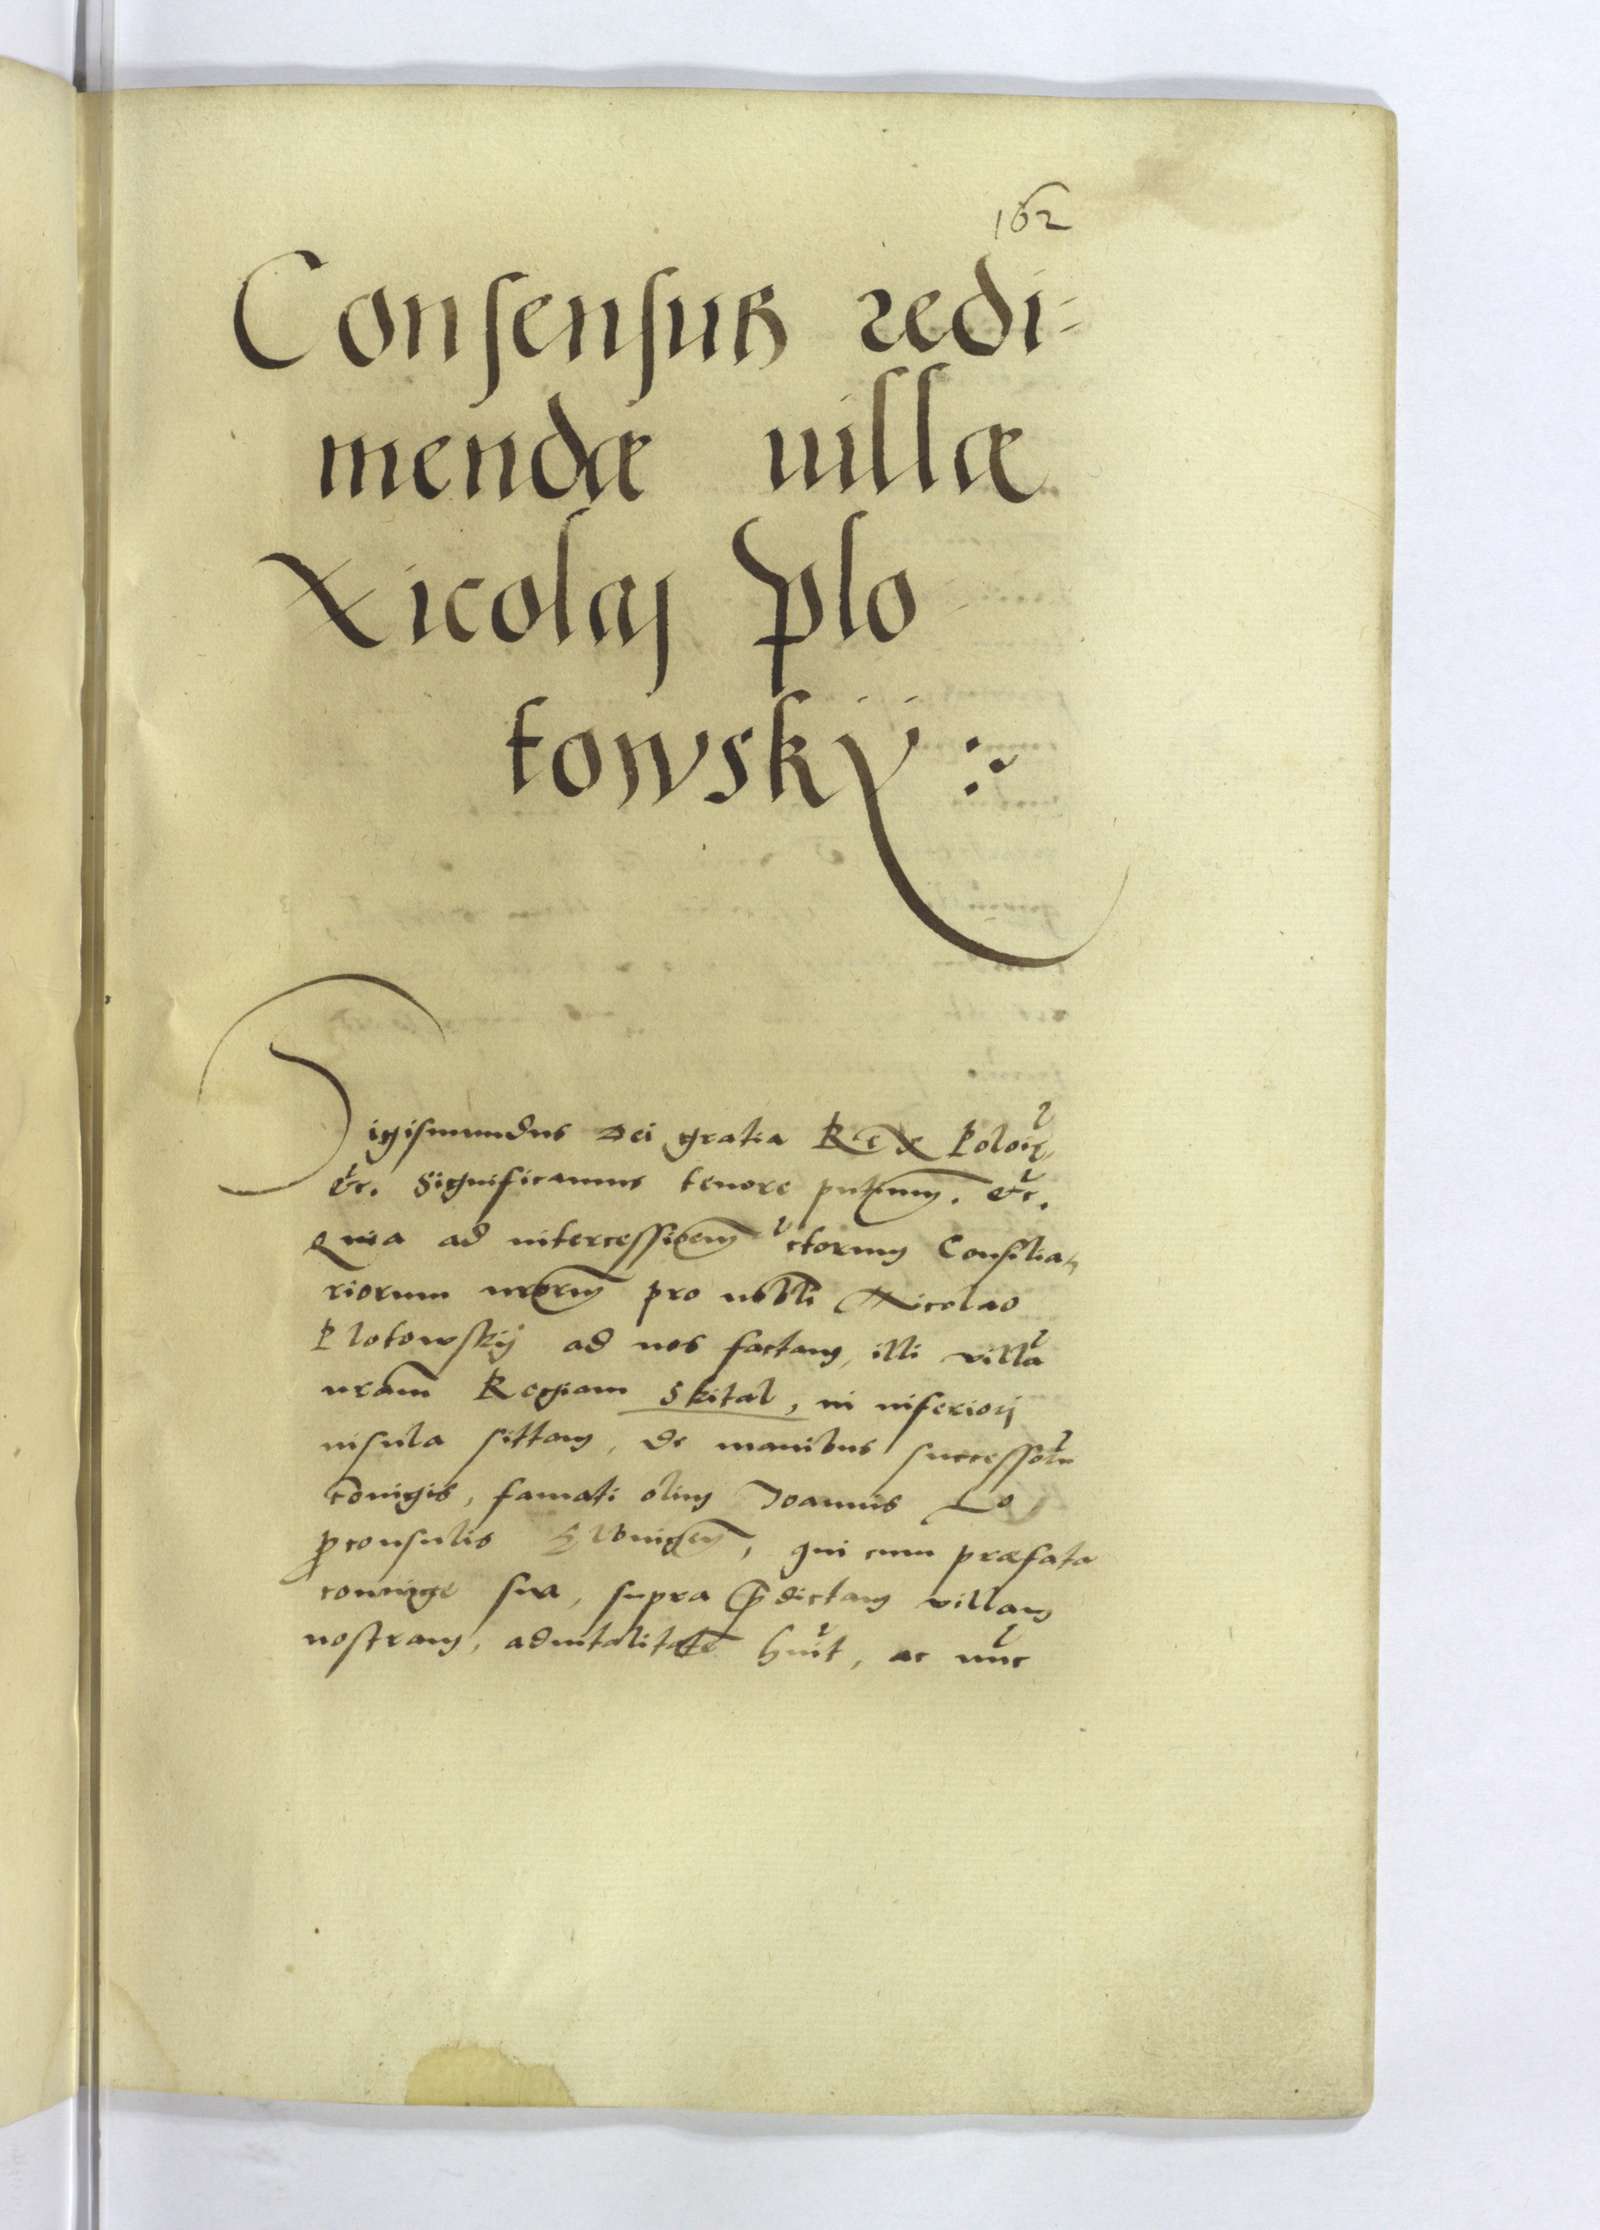 162
Consensus redi-
mendæ uillæ
Nicolaj Plo
towskij :~
Sigismundus Dei gratia Rex Poloīę
etc. Significamus tenore pntium. etc.
Quia ad intercessioem ctorum Consilia,
riorum nrorum pro nobili Nicolao
Plotowskij ad nos factam, illi villā
nram Regiam Skital, in inferiorj
insula sittam, de manibus successorū
coniugis, famati olim Joannis Lo
proconsulis Elbingen, qui cum præfata
coniuge sua, supra prædictam villam
nostram, aduitalitatē huīt, ac nūc